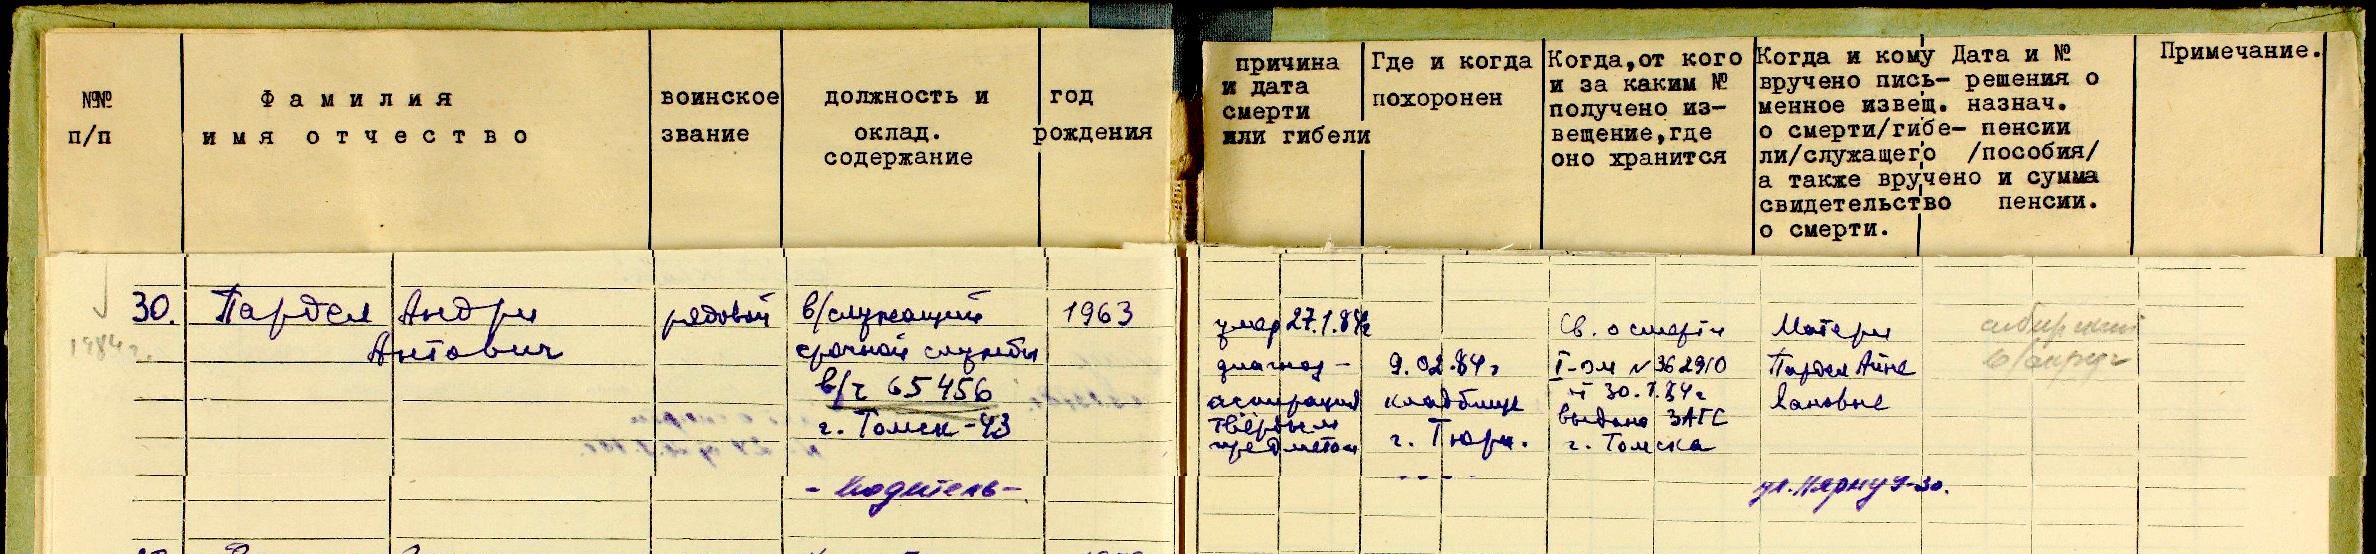 №№
п/п
Фамилия
имя отчество
воинское
звание
должность и
оклад.
содержание
год
рождения
причина
и дата
смерти
или гибели
Где и когда
похоронен
Когда,от кого
и за каким №
получено из-
вещение,где
оно хранится
Когда и кому
вручено пись-
менное извещ.
о смерти/гибе-
ли/служащего
а также вручено
свидетельство
о смерти.
Дата и №
решения о
назнач.
пенсии
/пособия/
и сумма
пенсии.
Примечание.
1984 г.
30.
Пардел Андри
Антович
рядовой
в/служащий
срочной службы
в/ч 65456
г. Томск-43
- Водитель -
1963
умер 27.1.84г
диагноз -
аспирация
твёрдым
предметом
9.02.84г
кладбище
г. Тюри.
Св. о смерти
I-ОМ № 362910
от 30.1.84г
выдано ЗАГС
г. Томска
Матери
Пардел Айне
Яновне
ул. Пярну 9-30.
сибирский
в/округ